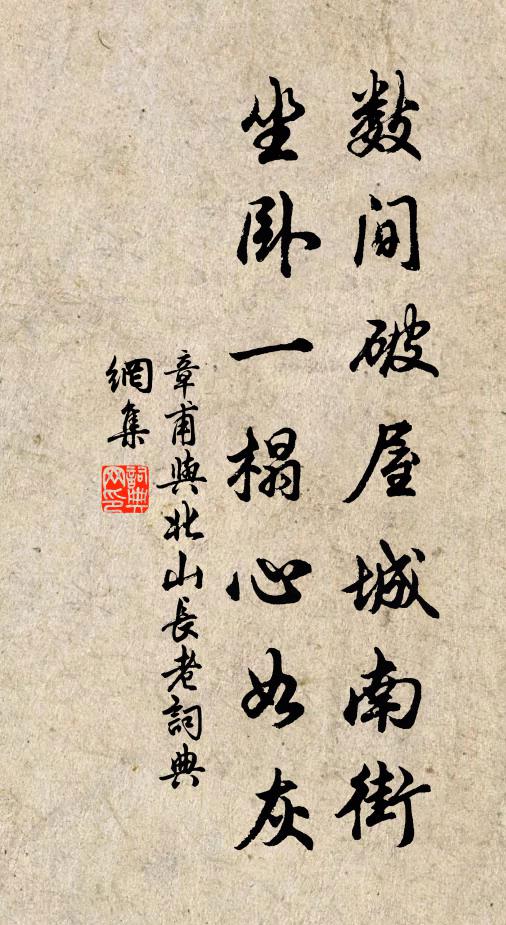 數間破屋城南街
坐臥一榻心如灰
章甫與北山長老詞典
網集
詞典
网印